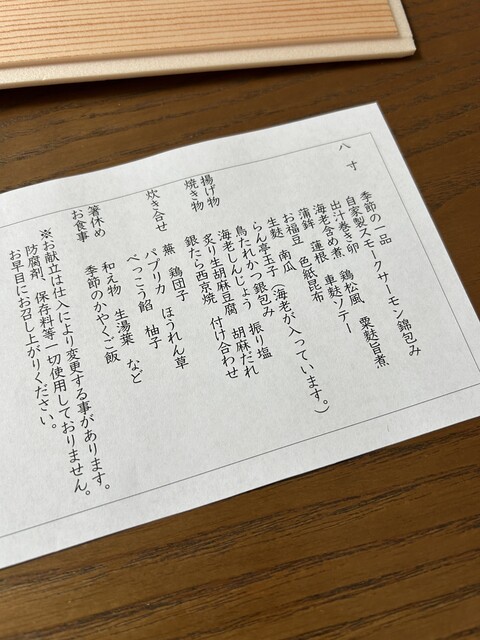 八寸
季節の一品
自家製スモークサーモン錦包み
出汁巻き卵　鶏松風　粟麩旨煮
海老含め煮　車麩ソテー
蒲鉾　蓮根　色紙昆布
お福豆　南瓜
生麩
らん亭玉子（海老が入っています。）
鳥たれかつ銀包み　振り塩
揚げ物　海老しんじょう　胡麻だれ
焼き物　炙り生胡麻豆腐　付け合わせ
銀だら西京焼
炊き合せ　蕪　鶏団子　ほうれん草
パプリカ　柚子
べっこう餡
箸休め　和え物　生湯葉　など
お食事　季節のかやくご飯
※お献立は仕入により変更する事があります。
防腐剤、保存料等一切使用しておりません。
お早目にお召し上がりください。